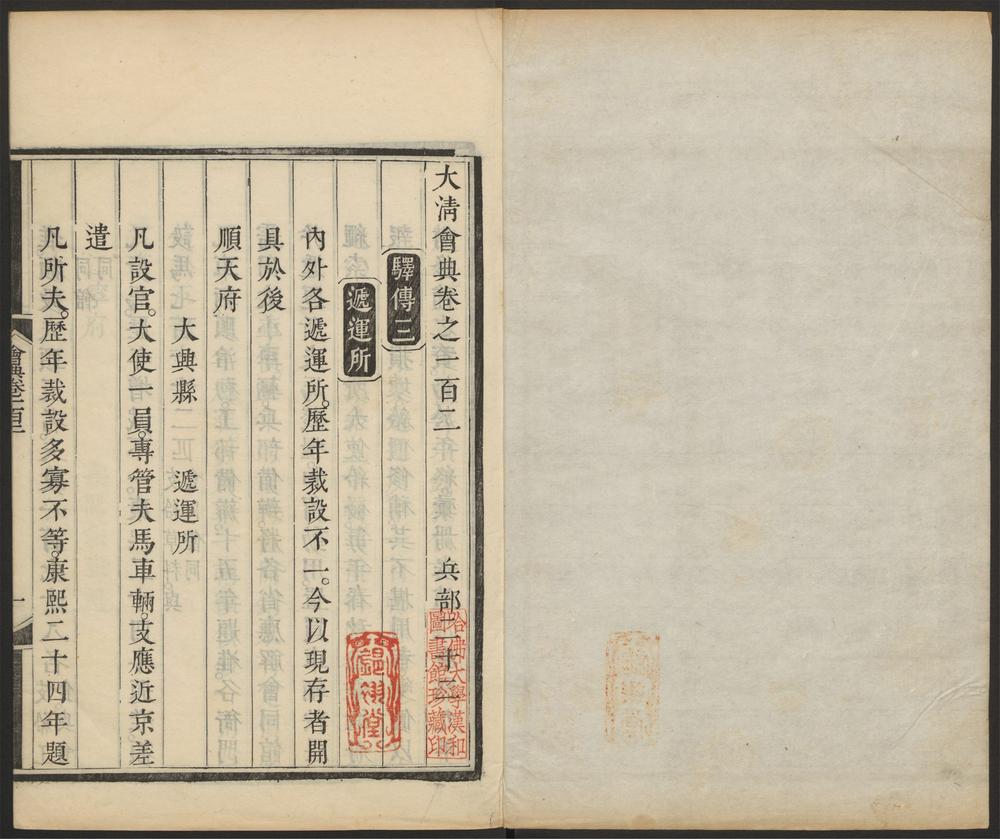 大清會典卷之一百二　兵部二十二
驛傳三
遞運所
內外各遞運所。歷年裁設不一。今以現存者開
具於後
順天府
大興縣　遞運所
凡設官。大使一員。專管夫馬車輛。支應近京差
遣
凡所夫。歷年裁設。多寡不等。康熙二十四年題
會典卷一百二
一
哈佛大學漢和
圖書館珍藏印